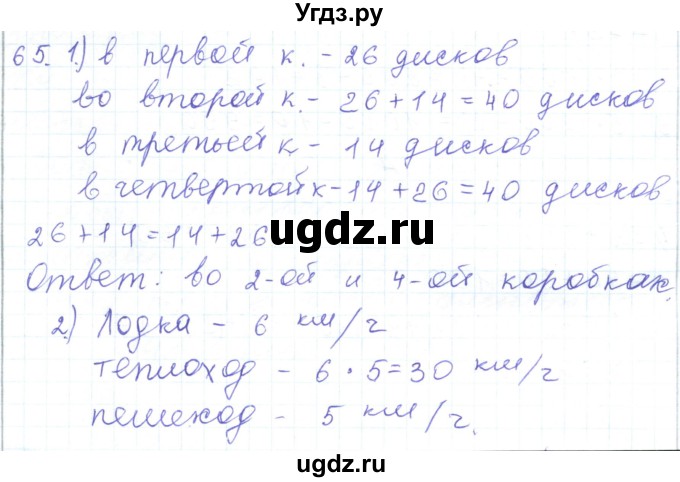 Угдз.ру
65. 1.) в первой к. - 26 дисков
во второй к. - 26 + 14 = 40 дисков
в третьей к - 14 дисков
в четвертой к - 14 + 26 = 40 дисков
26 + 14 = 14 + 26
ugdz.ru
Ответ: во 2-ой и 4-ой коробках.
2.) Лодка - 6 км/ч
теплоход - 6 · 5 = 30 км/ч
пешеход - 5 км/ч.
ugdz.ru